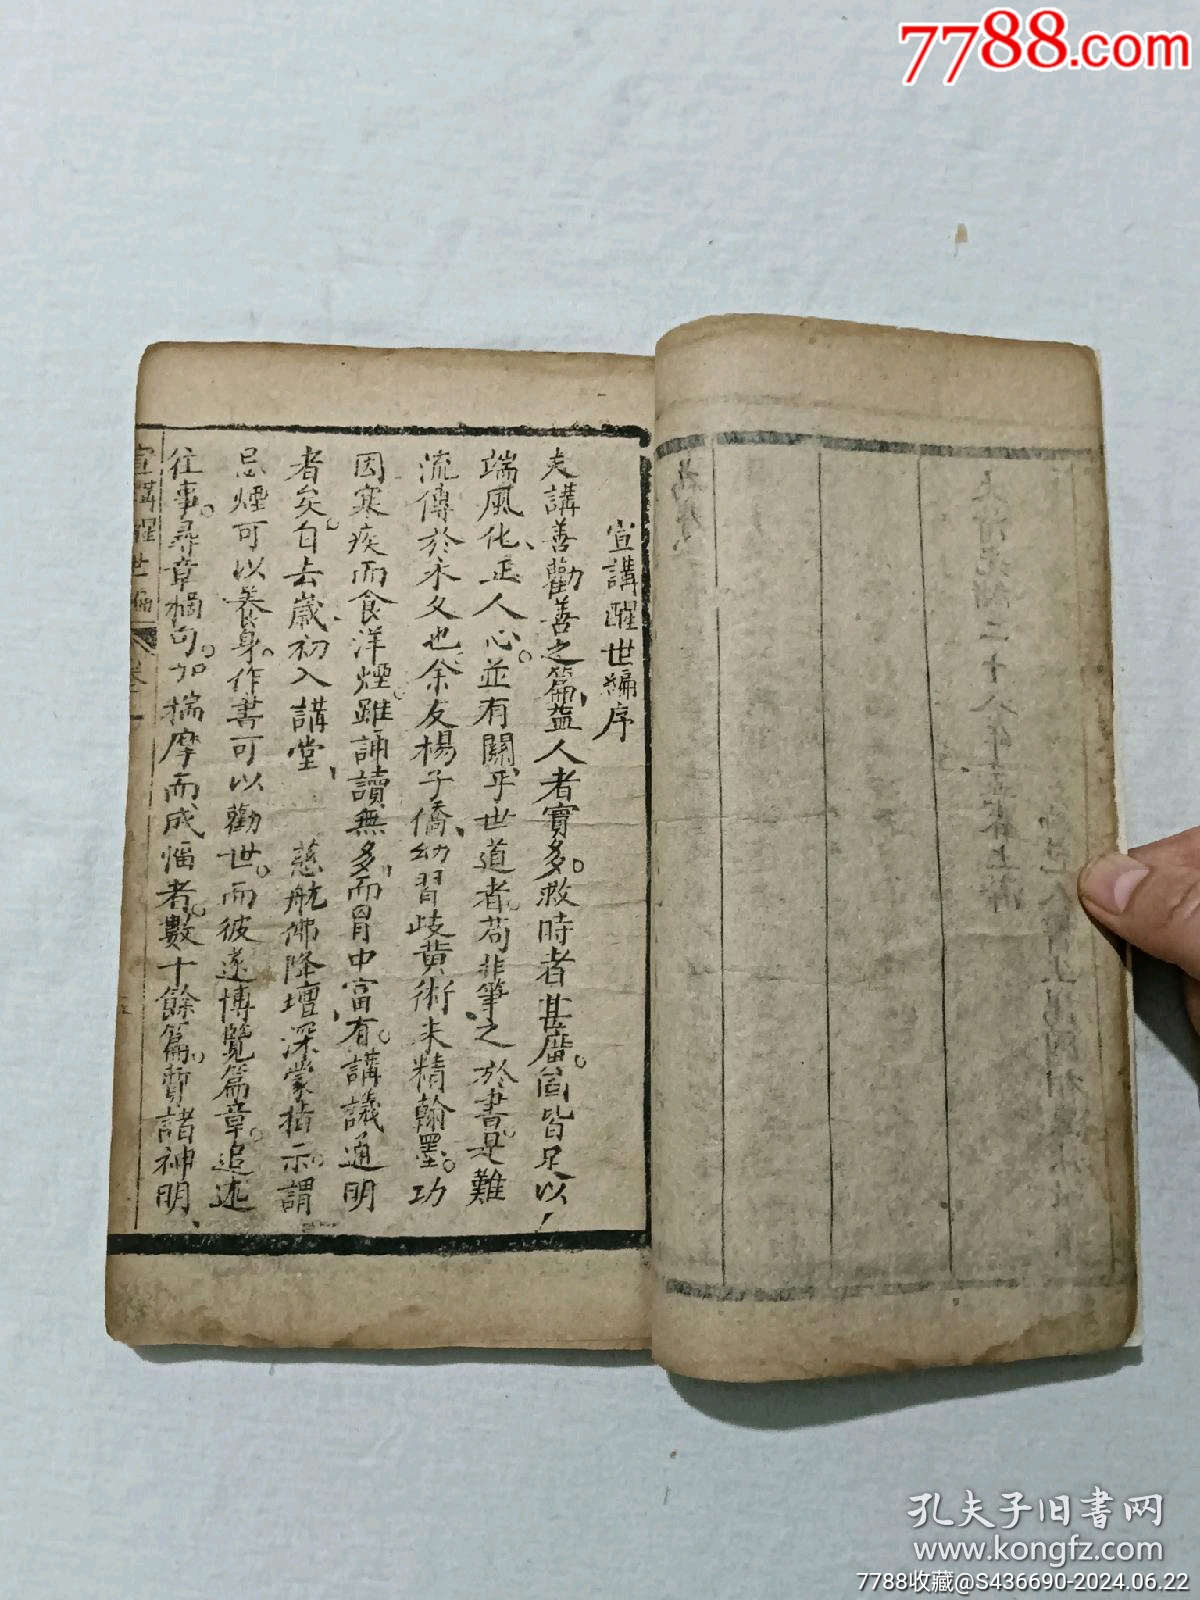 7788.com
宣講醒世編序
夫講善勸善之篇、益人者實多。救時者甚廣。固皆足以
端風化、正人心。並有關乎世道者。苟非筆之於書。是難
流傳於永久也。余友楊子僑、幼習歧黃術、未精翰墨。功
因寒疾而食洋煙。雖誦讀無多、而胃中富有。講議通明
者矣。自去歲初入講堂、 慈航佛降壇、深蒙指示。謂
忌煙可以養身。作書可以勸世。而彼遂博覽篇章。追述
往事。尋章摘句。加揣摩而成幅者。數十餘篇。暫諸神明、
宣講醒世編
大清光緒二十八年
孔夫子旧书网
www.kongfz.com
7788收藏@S436690-2024.06.22